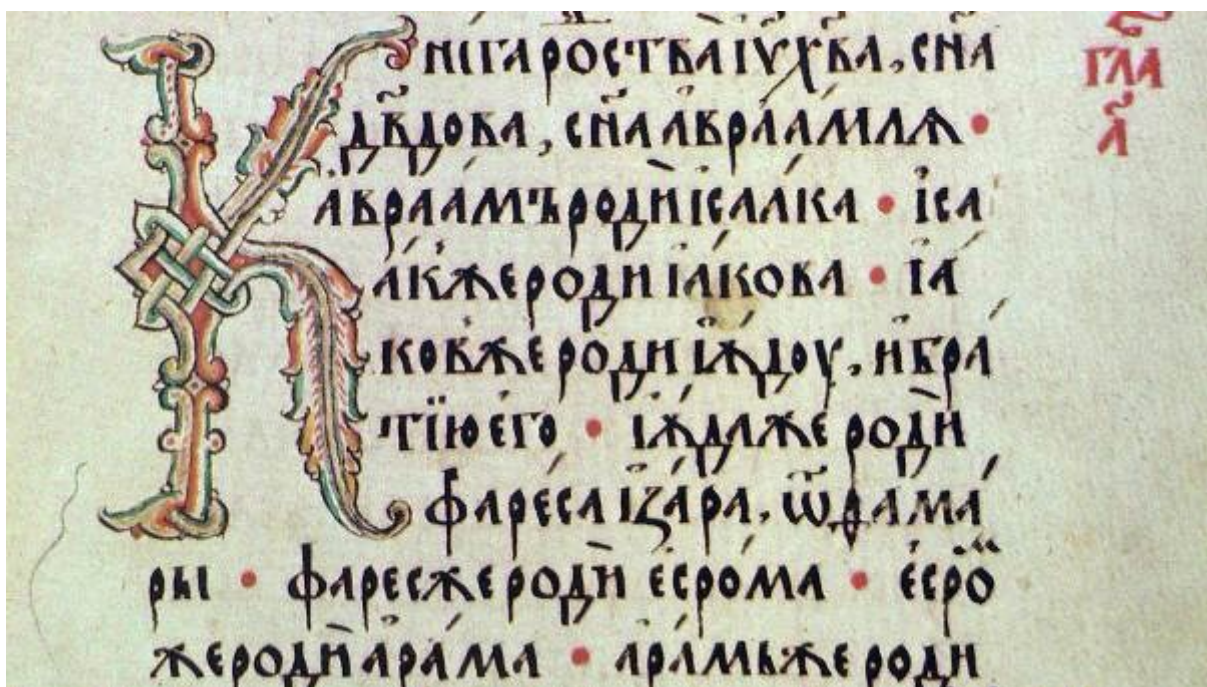 Кнїга рос҇тва і҆у҃ х҃ва, сн҃а
дв҃дова, сн҃а авраамлѧ •
авраамъ родѝ ісаака • іса
а́к же родѝ іа́кова • іа́
ков же родѝ іꙋ́доу, и҆ бра́
тїю его • іꙋ́да же родѝ
фаре́са і за́ра, ѿ ѳама́
ры • фарес же родѝ есро́ма • есро́
же родѝ ара́ма • ара́мь же роди
гл҃а
а҃